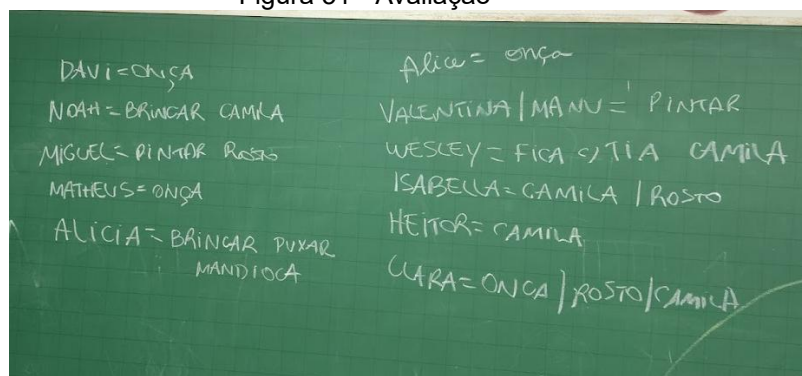 Figura 31 - Avaliação
DAVI = ONÇA
NOAH = BRINCAR CAMILA
MIGUEL = PINTAR ROSTO
MATHEUS = ONÇA
ALICIA = BRINCAR PUXAR
MANDIOCA
Alice = onça
VALENTINA | MANU = PINTAR
WESLEY = FICA C/ TIA CAMILA
ISABELLA = CAMILA | ROSTO
HEITOR = CAMILA
CLARA = ONCA | ROSTO | CAMILA